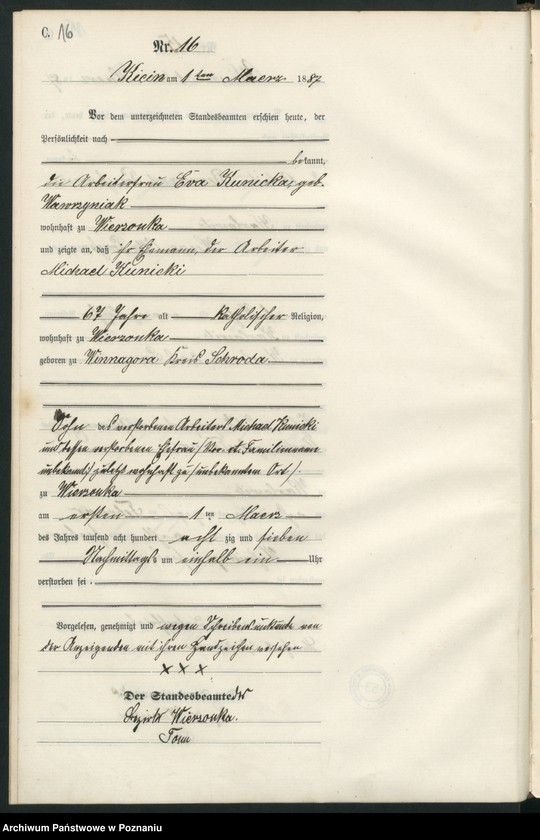 C. 16
Nr. 16
Kicin am 1ten Maerz 1887
Vor dem unterzeichneten Standesbeamten erschien heute, der
Persönlichkeit nach
bekannt,
die Arbeiterfrau Eva Kunicka, geb.
Wawrzyniak
wohnhaft zu Wierzonka
und zeigte an, daß ihr Ehemann, der Arbeiter
Michael Kunicki
67 Jahre alt katholischer Religion,
wohnhaft zu Wierzonka
geboren zu Winnagora Kreis Schroda
Sohn des verstorbenen Arbeiters Michael Kunicki
und dessen verstorbenen Ehefrau /Vor- et. Familienname
unbekannt/ zuletzt wohnhaft zu /unbekannten Ort/.
zu Wierzonka
am ersten 1ten Maerz
des Jahres tausend acht hundert acht zig und sieben
Nachmittags um einhalb ein Uhr
verstorben sei.
Vorgelesen, genehmigt und wegen Schreibensunkunde von
der Anzeigenden mit ihren Handzeichen versehen
x x x
Der Standesbeamte des
Bezirks Wierzonka.
Archiwum Państwowe w Poznaniu